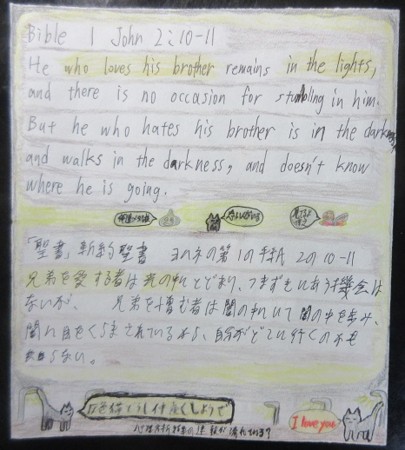 Bible 1 John 2:10-11
He who loves his brother remains in the lights,
and there is no occasion for stumbling in him.
But he who hates his brother is in the darkness
and walks in the darkness, and doesn't know
where he is going.
「聖書」新約聖書 ヨハネの第1の手紙 2の10-11
兄弟を愛する者は光の中にとどまり、つまずきにあう機会は
ないが、 兄弟を憎む者は闇の中にいて闇の中を歩み、
闇に目をくらまされているから、自分がどこに行くのかも
知らない。
I love you